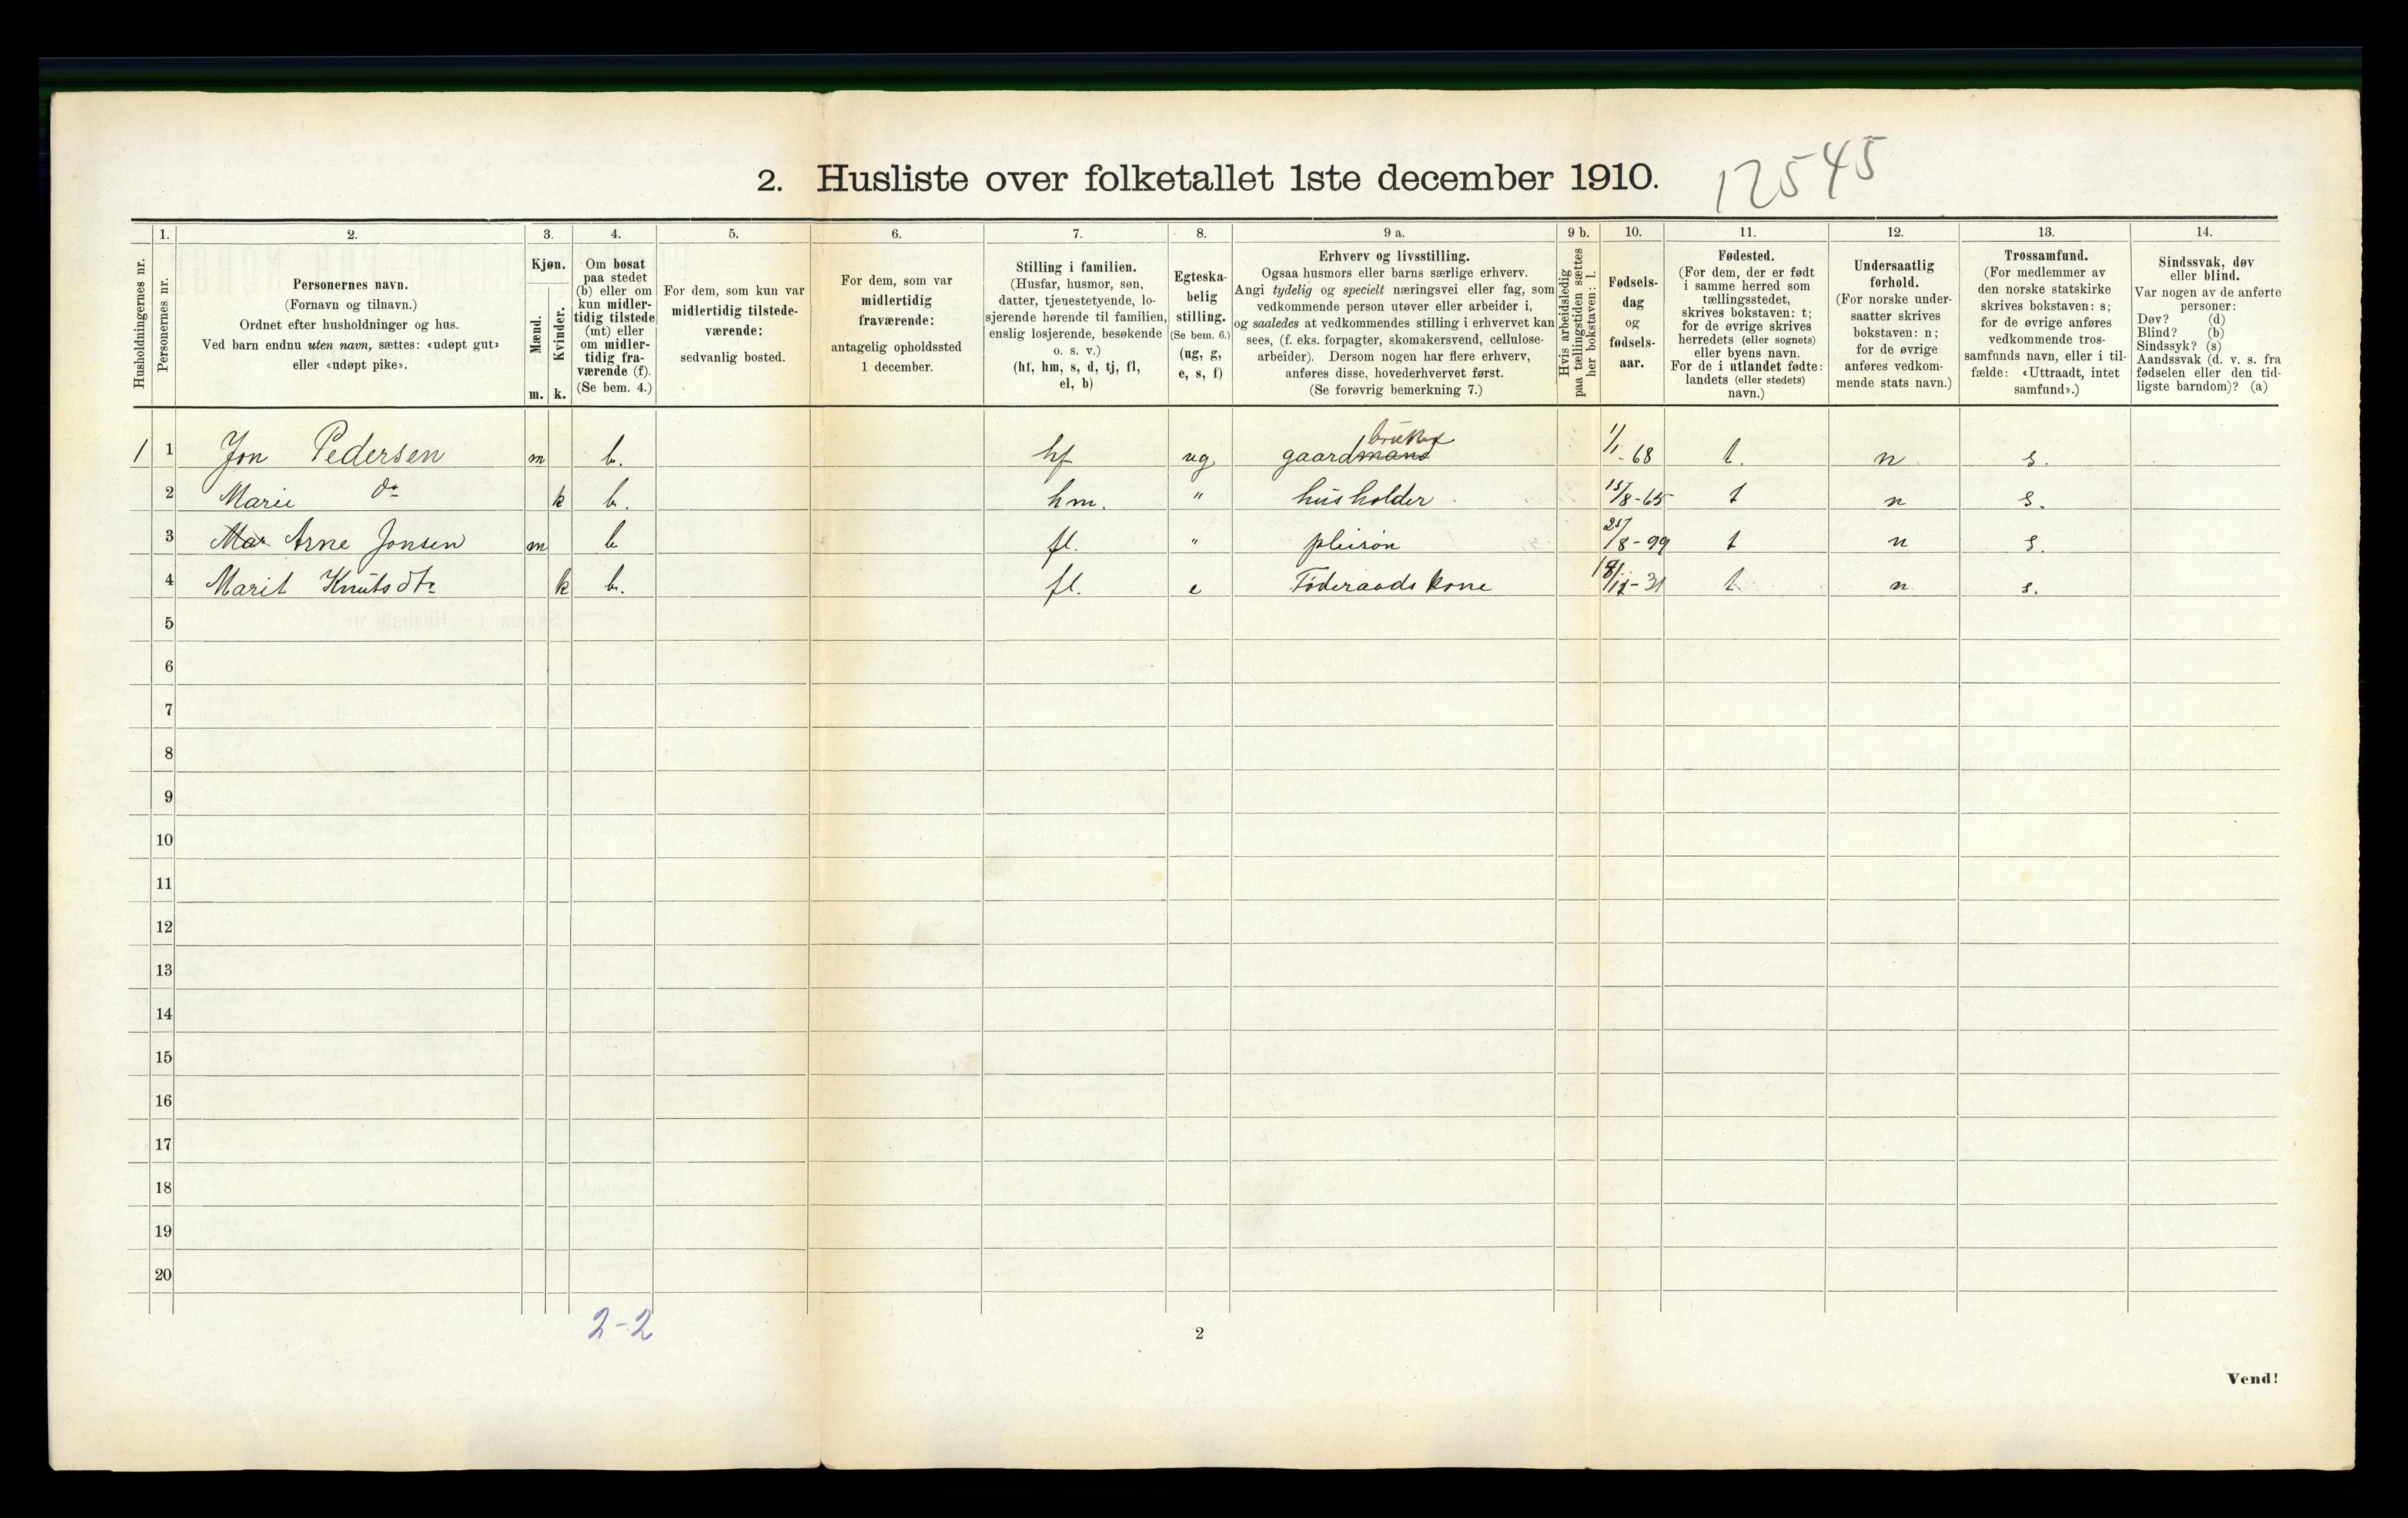 2. Husliste over folketallet 1ste december 1910. 12545
1. 2. 3. 4. 5. 6. 7. 8. 9 a. 9 b. 10. 11. 12. 13. 14.
Husholdningernes nr.
Personernes nr.
Personernes navn.
(Fornavn og tilnavn.)
Ordnet efter husholdninger og hus.
Ved barn endnu uten navn, sættes: «udøpt gut»
eller «udøpt pike».
Kjøn.
Mænd.
Kvinder.
m. k.
Om bosat
paa stedet
(b) eller om
kun midler-
tidig tilstede
(mt) eller
om midler-
tidig fra-
værende (f).
(Se bem. 4.)
For dem, som kun var
midlertidig tilstede-
værende:
sedvanlig bosted.
For dem, som var
midlertidig
fraværende:
antagelig opholdssted
1 december.
Stilling i familien.
(Husfar, husmor, søn,
datter, tjenestetyende, lo-
sjerende hørende til familien,
enslig losjerende, besøkende
o. s. v.)
(hf, hm, s, d, tj, fl,
el, b)
Egteska-
belig
stilling.
(Se bem. 6.)
(ug, g,
e, s, f)
Erhverv og livsstilling.
Ogsaa husmors eller barns særlige erhverv.
Angi tydelig og specielt næringsvei eller fag, som
vedkommende person utøver eller arbeider i,
og saaledes at vedkommendes stilling i erhvervet kan
sees, (f. eks. forpagter, skomakersvend, cellulose-
arbeider). Dersom nogen har flere erhverv,
anføres disse, hovederhvervet først.
(Se forøvrig bemerkning 7.)
Hvis arbeidsledig
paa tællingstiden sættes
her bokstaven: l.
Fødsels-
dag
og
fødsels-
aar.
Fødested.
(For dem, der er født
i samme herred som
tællingsstedet,
skrives bokstaven: t;
for de øvrige skrives
herredets (eller sognets)
eller byens navn.
For de i utlandet fødte:
landets (eller stedets)
navn.)
Undersaatlig
forhold.
(For norske under-
saatter skrives
bokstaven: n;
for de øvrige
anføres vedkom-
mende stats navn.)
Trossamfund.
(For medlemmer av
den norske statskirke
skrives bokstaven: s;
for de øvrige anføres
vedkommende tros-
samfunds navn, eller i til-
fælde: «Uttraadt, intet
samfund».)
Sindssvak, døv
eller blind.
Var nogen av de anførte
personer:
Døv? (d)
Blind? (b)
Sindssyk? (s)
Aandssvak (d. v. s. fra
fødselen eller den tid-
ligste barndom)? (a)
bruker
1 1 Jon Pedersen m b. hf ug gaardmand 1/1-68 t. n s.
2 Marie do k b. hm. " husholder 15/8-65 t n s.
3 Mar Arne Jonsen m b fl. " pleisøn 25/8-99 t n s.
4 Marit Knutsdtr k b. fl. e Föderaads kone 18/12-31 t. n s.
5
6
7
8
9
10
11
12
13
14
15
16
17
18
19
20
2-2
2
Vend!